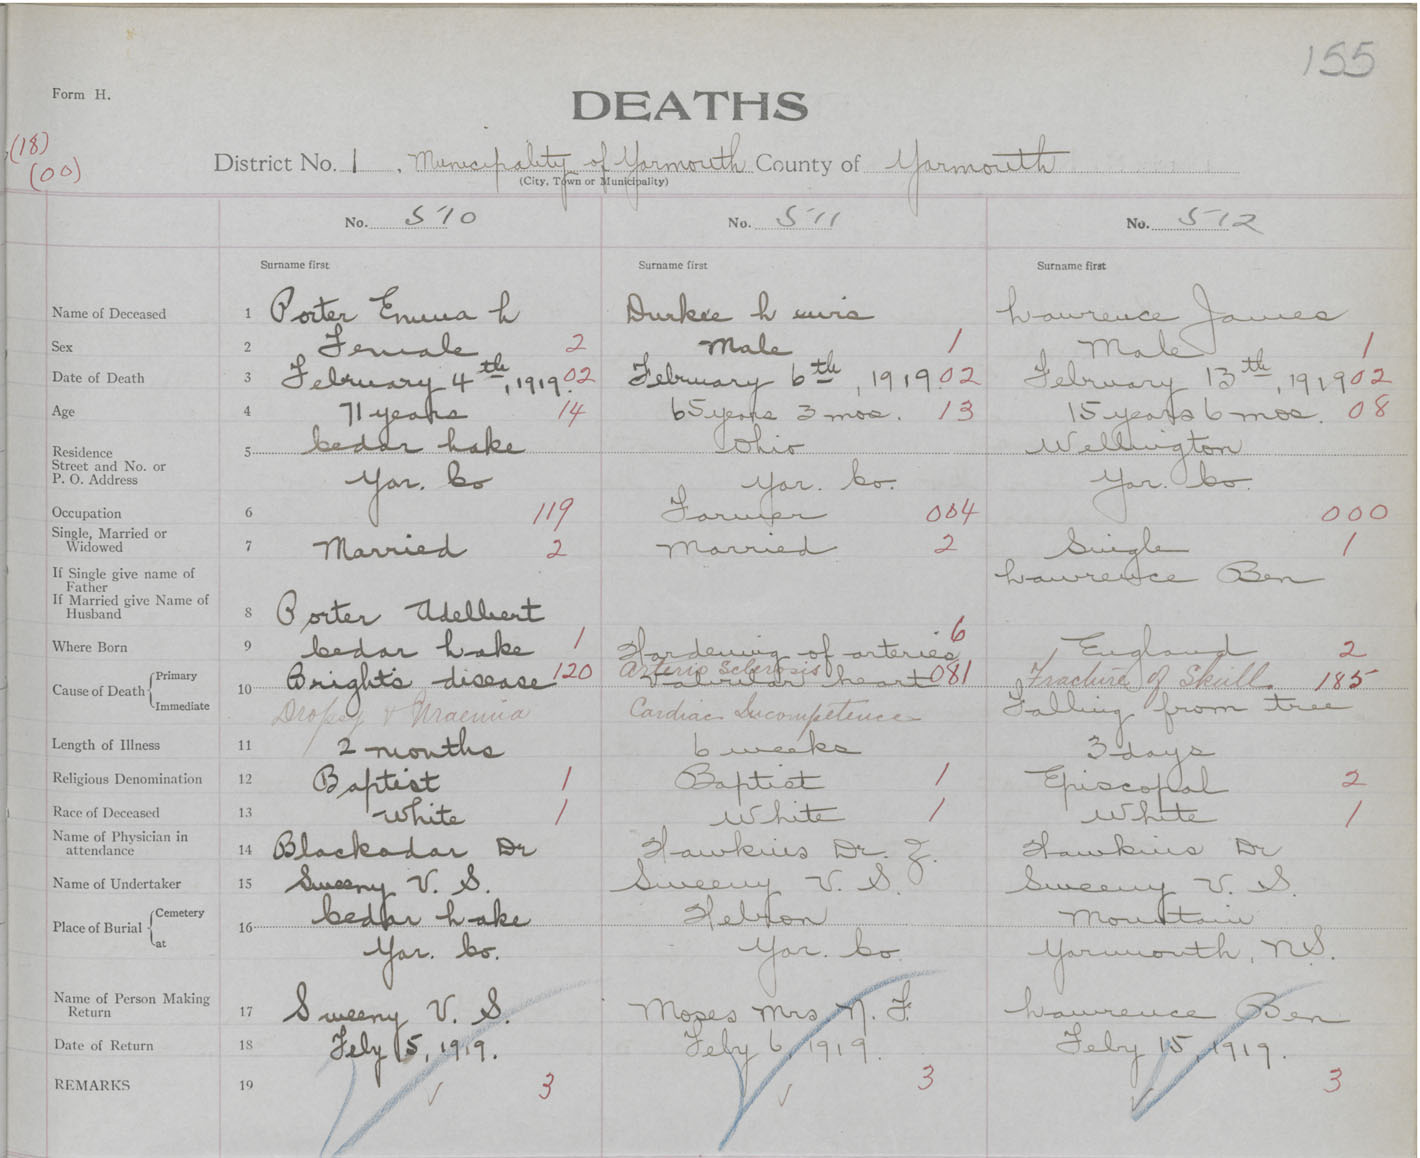 155
Form H.
DEATHS
(18)
(00)
District No. 1, Municipality of Yarmouth County of Yarmouth
(City, Town or Municipality)
No. 510 No. 511 No. 512
Surname first Surname first Surname first
Name of Deceased 1 Porter Emma L Durkee Lewis Lawrence James
Sex 2 Female 2 Male 1 Male 1
Date of Death 3 February 4th, 1919. 02 February 6th, 1919 02 February 13th, 1919 02
Age 4 71 years 14 65 years 3 mos. 13 15 years 6 mos. 08
Residence 5 Cedar Lake Ohio Wellington
Street and No. or
P. O. Address Yar. Co Yar. Co. Yar. Co.
Occupation 6 119 Farmer 004 000
Single, Married or
Widowed 7 Married 2 Married 2 Single 1
If Single give name of
Father Lawrence Ben
If Married give Name of
Husband 8 Porter Adelbert
Where Born 9 Cedar Lake 1 Hardening of arteries 6 England 2
Cause of Death Primary 10 Bright's disease 120 Arterio Sclerosis Valvular heart 081 Fracture of Skull 185
Immediate Dropsy & Uraemia Cardiac Incompetence Falling from tree
Length of Illness 11 2 months 6 weeks 3 days
Religious Denomination 12 Baptist 1 Baptist 1 Episcopal 2
Race of Deceased 13 White 1 White 1 White 1
Name of Physician in
attendance 14 Blackadar Dr Hawkins Dr. Z. Hawkins Dr
Name of Undertaker 15 Sweeny V. S. Sweeny V. S. Sweeny V. S.
Place of Burial Cemetery 16 Cedar Lake Hebron Mountain
at Yar. Co. Yar. Co. Yarmouth, N.S.
Name of Person Making
Return 17 Sweeny V. S. Moses Mrs N. F. Lawrence Ben
Date of Return 18 Feby 15, 1919. Feby 6, 1919. Feby 15, 1919.
REMARKS 19 3 3 3